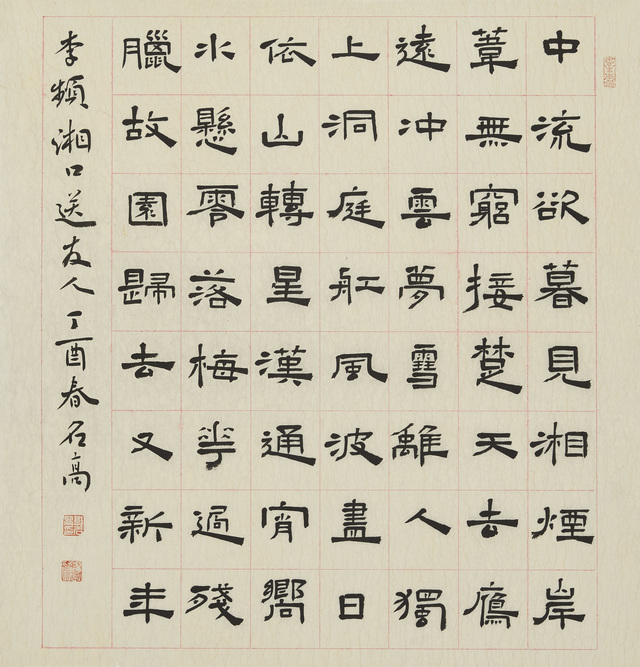 中流欲暮見湘煙岸
葦無窮接楚天去鴈
遠冲雲夢雪離人獨
上洞庭舡風波盡日
依山轉星漢通宵嚮
水懸零落梅華過殘
臘故園歸去又新年
李頻湘口送友人丁酉春名高